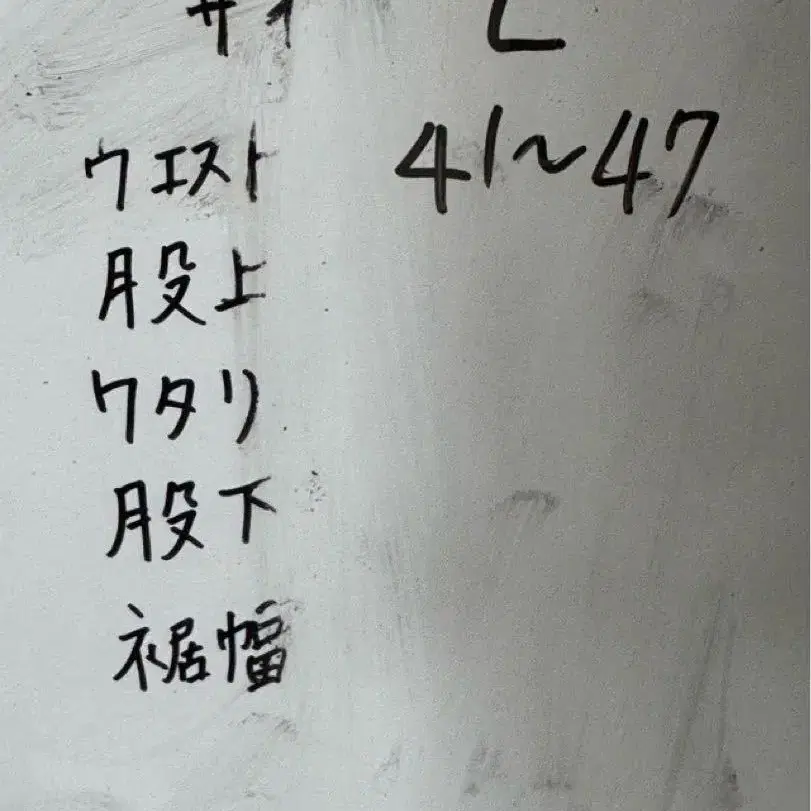 サイ L
ウエスト 41~47
股上
ワタリ
股下
裾幅